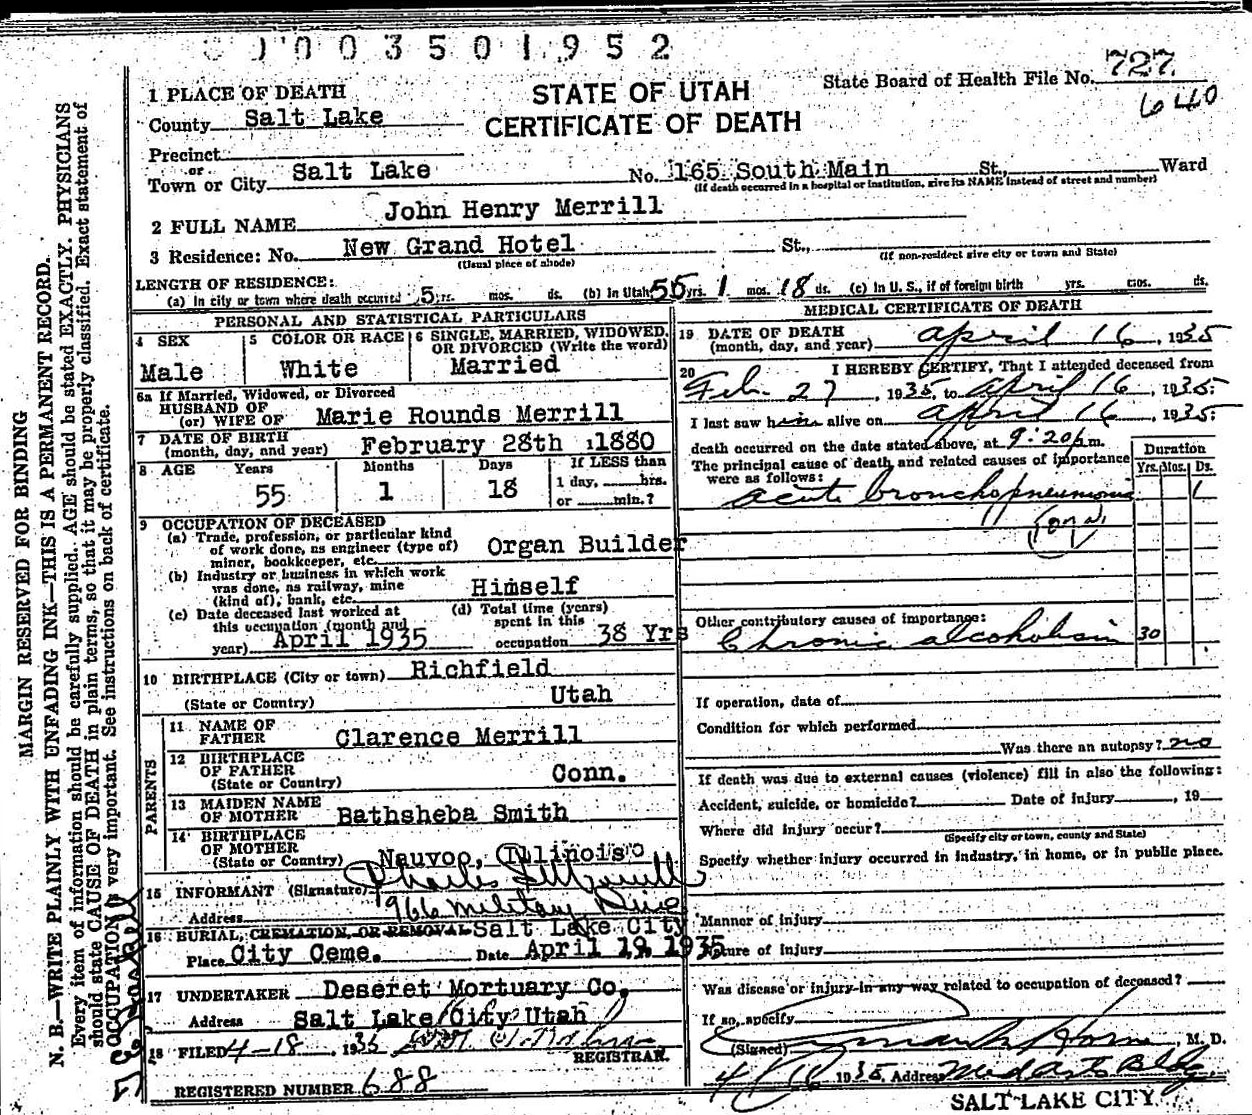 003501952
State Board of Health File No. 727
640
STATE OF UTAH
CERTIFICATE OF DEATH
1 PLACE OF DEATH
County Salt Lake
Precinct
or
Town or City Salt Lake No. 165 South Main St., Ward
(If death occurred in a hospital or institution, give its NAME instead of street and number)
2 FULL NAME John Henry Merrill
3 Residence: No. New Grand Hotel St.,
(Usual place of abode) (If non-resident give city or town and State)
LENGTH OF RESIDENCE:
(a) In city or town where death occurred 5 yrs. mos. ds. (b) In Utah 55 yrs. 1 mos. 18 ds. (c) In U. S., if of foreign birth yrs. mos. ds.
PERSONAL AND STATISTICAL PARTICULARS
4 SEX
Male
5 COLOR OR RACE
White
6 SINGLE, MARRIED, WIDOWED, OR DIVORCED (Write the word)
Married
6a If Married, Widowed, or Divorced
HUSBAND OF
(or) WIFE OF Marie Rounds Merrill
7 DATE OF BIRTH
(month, day, and year) February 28th 1880
8 AGE Years Months Days If LESS than
55 1 18 1 day, hrs.
or min.?
9 OCCUPATION OF DECEASED
(a) Trade, profession, or particular kind
of work done, as engineer (type of)
miner, bookkeeper, etc. Organ Builder
(b) Industry or business in which work
was done, as railway, mine
(kind of), bank, etc. Himself
(c) Date deceased last worked at
this occupation (month and
year) April 1935
(d) Total time (years)
spent in this
occupation 38 Yrs
10 BIRTHPLACE (City or town) Richfield
(State or Country) Utah
PARENTS
11 NAME OF
FATHER Clarence Merrill
12 BIRTHPLACE
OF FATHER
(State or Country) Conn.
13 MAIDEN NAME
OF MOTHER Bathsheba Smith
14 BIRTHPLACE
OF MOTHER
(State or Country) Nauvoo, Illinois
15 INFORMANT (Signature)
Address 966 Military Drive
16 BURIAL, CREMATION, OR REMOVAL Salt Lake City
Place City Ceme. Date April 19, 1935
17 UNDERTAKER Deseret Mortuary Co.
Address Salt Lake City Utah
18 FILED 4-18, 1935
REGISTRAR.
REGISTERED NUMBER 688
MEDICAL CERTIFICATE OF DEATH
19 DATE OF DEATH
(month, day, and year) April 16, 1935
20 I HEREBY CERTIFY, That I attended deceased from
Feb. 27, 1935, to April 16, 1935
I last saw him alive on April 16, 1935;
death occurred on the date stated above, at 9:20 p.m.
The principal cause of death and related causes of importance
were as follows:
Duration
Yrs. Mos. Ds.
acute bronchopneumonia 1
Other contributory causes of importance:
Chronic alcoholism 30
If operation, date of
Condition for which performed
Was there an autopsy? no
If death was due to external causes (violence) fill in also the following:
Accident, suicide, or homicide? Date of injury, 19
Where did injury occur?
(Specify city or town, county and State)
Specify whether injury occurred in industry, in home, or in public place.
Manner of injury
Nature of injury
Was disease or injury in any way related to occupation of deceased?
If so, specify
(Signed) M. D.
4/16 1935 Address Med Arts Bldg
SALT LAKE CITY
MARGIN RESERVED FOR BINDING
N. B.—WRITE PLAINLY WITH UNFADING INK—THIS IS A PERMANENT RECORD.
Every item of information should be carefully supplied. AGE should be stated EXACTLY. PHYSICIANS
should state CAUSE OF DEATH in plain terms, so that it may be properly classified. Exact statement of
OCCUPATION is very important. See instructions on back of certificate.